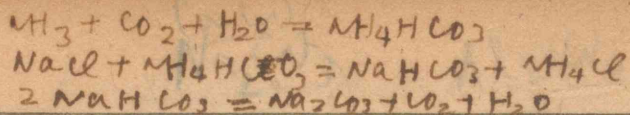 NH3 + CO2 + H2O = NH4HCO3
NaCl + NH4HCO3 = NaHCO3 + NH4Cl
2 NaHCO3 = Na2CO3 + CO2 + H2O